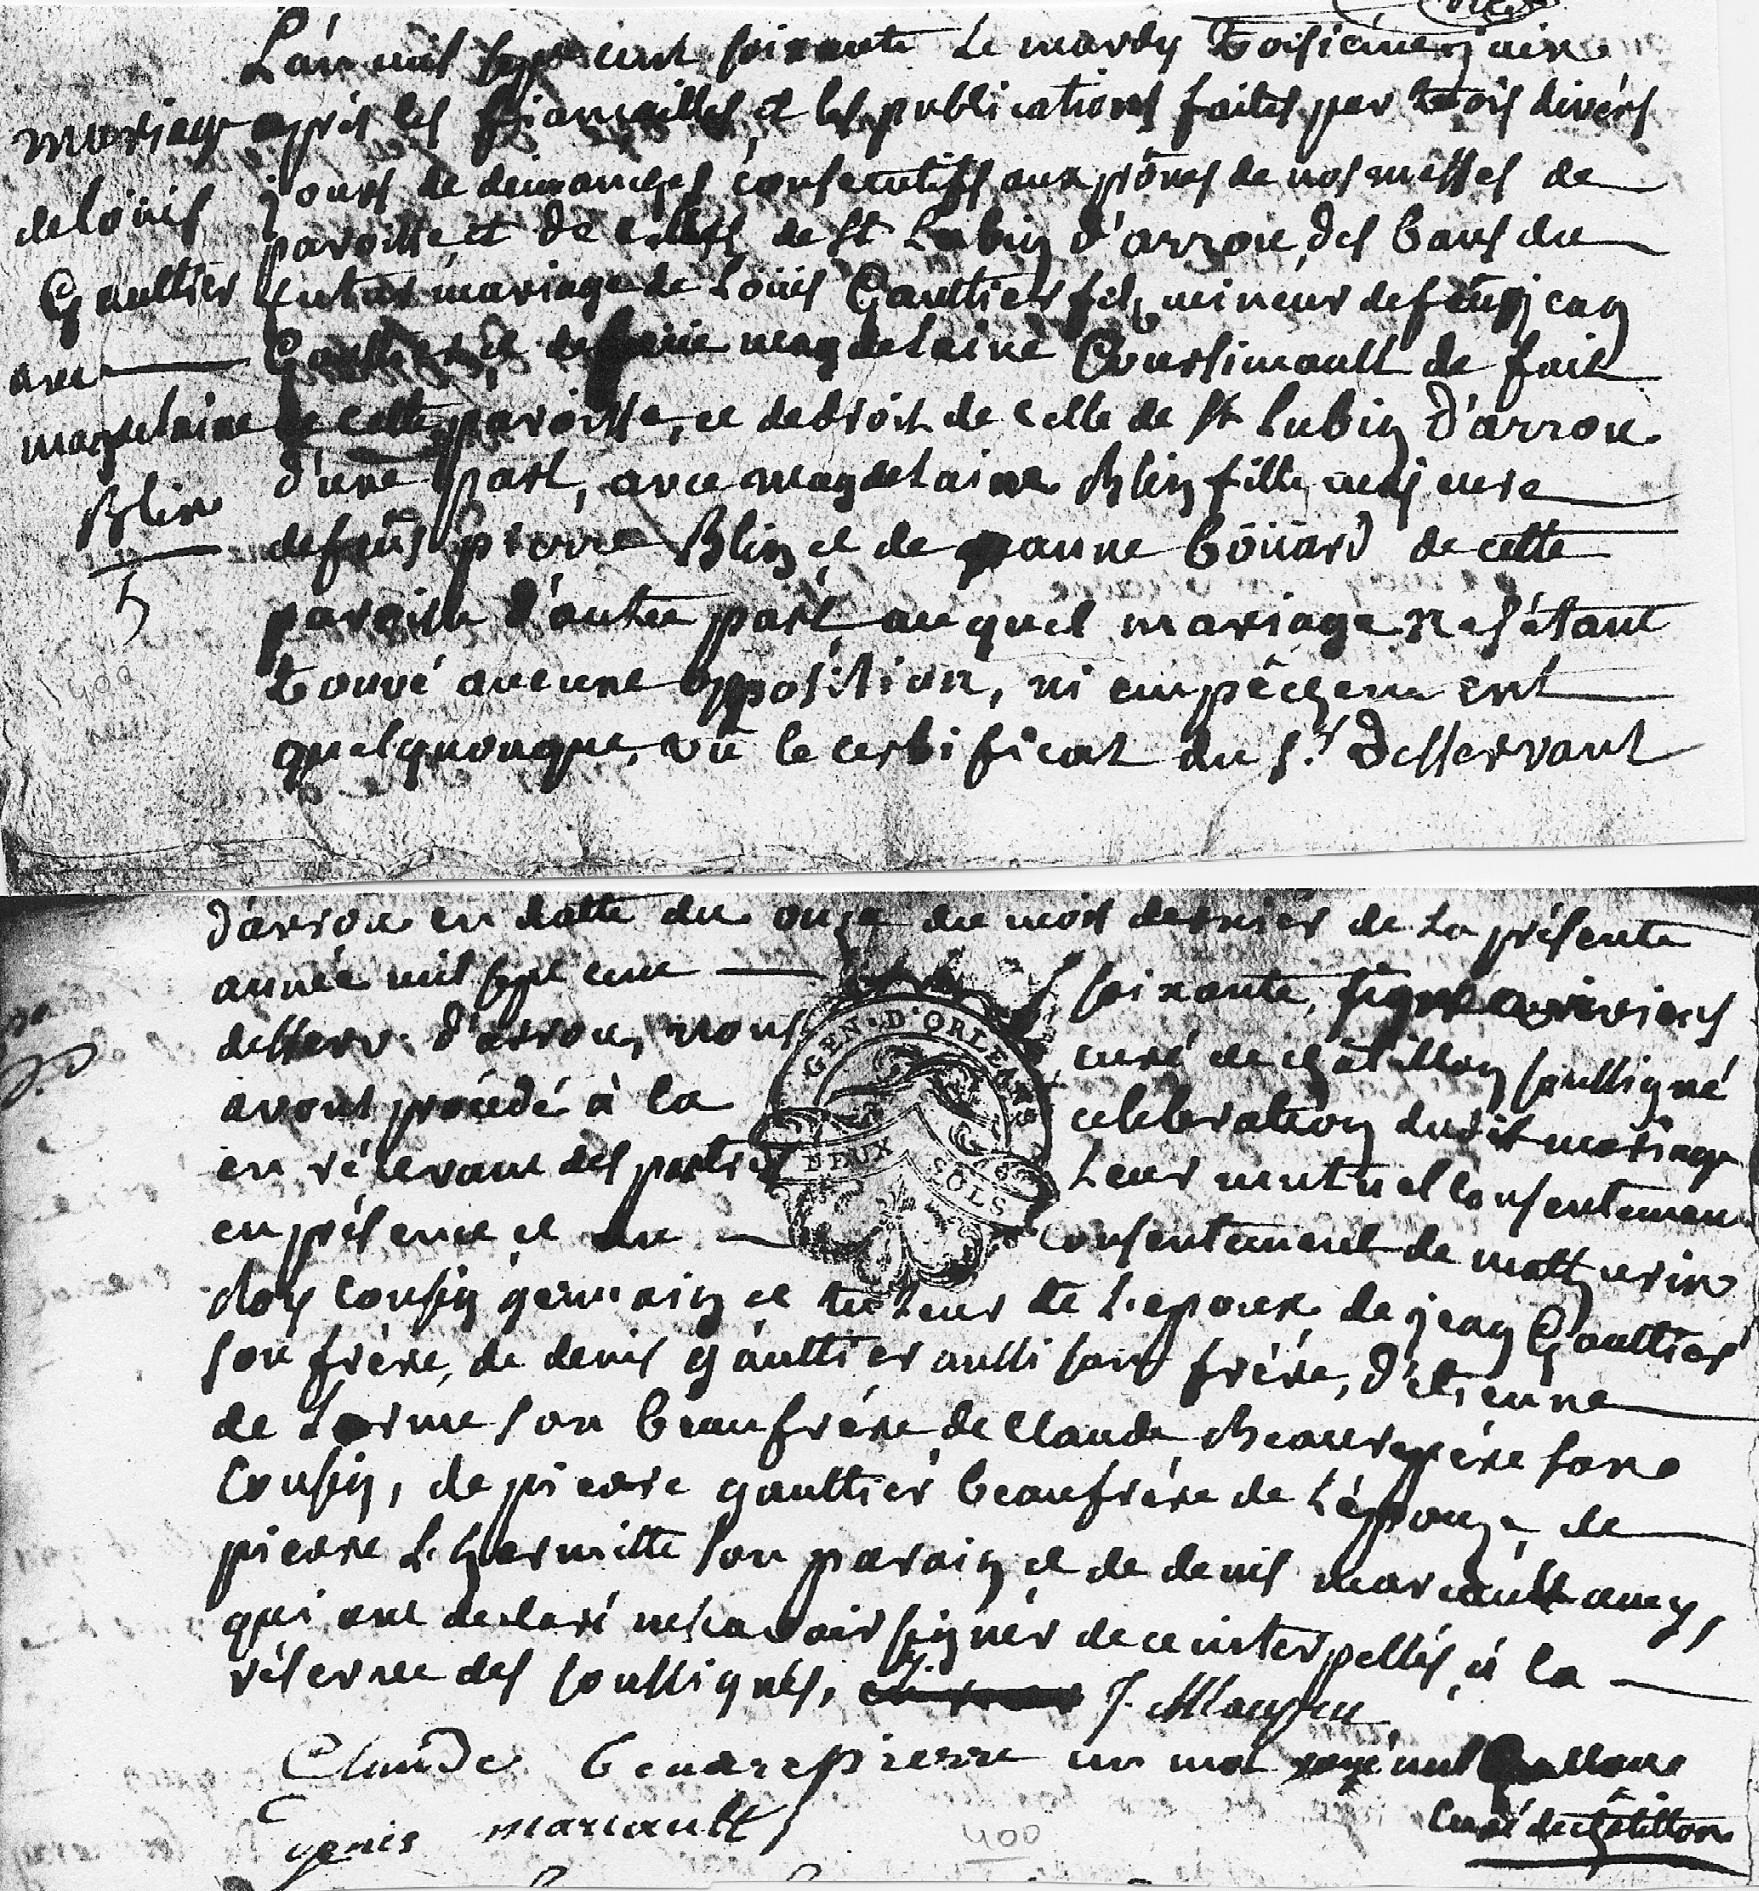 L'an mil sept cent soixante le mardy troisiéme juin
mariage
après les fiançailles et les publications faites par trois divers
de loüis
jours de dimanches consecutifs aux prônes de nos messes de
paroisse et de celles de St Lubin d'arrou, des bans du
Gaultier
futur mariage de Loüis Gaultier fils mineur de feüs jean
avec
Gaultier et de magdelaine Coursimault de fait
magdelaine
de cette paroisse, et de droit de celle de St Lubin d'arrou
Blin
d'une part, avec magdelaine Blin fille majeure
5
de feüs pierre Blin et de anne Boüard de cette
paroisse d'autre part, auquel mariage ne s'étant
trouvé aucune opposition, ni empêchement
400
quelquonque, vû le certificat du Sr. desservant
d'arrou en datte du onze du mois dernier de la présente
année mil sept cent soixante, signé
desserv. d'arrou, nous curé de châtillon soussigné
GEN. D'ORLEANS
avons procédé à la celebration dudit mariage
en réçevant des parties leur mutuel consentement
DEUX SOLS
en présence et du consentement de mathurin
cousin germain et tuteur de L'epoux de jean Gaultier
son frère, de denis gaultier aussi son frére, d'etienne
de Lorme son beaufrére de Claude Beaurepére son
cousin, de pierre gaultier beaufrére de L'épouze, de
pierre Lhermitte son parain et de denis marcault amy,
qui ont declaré ne sçavoir signer de ce interpellés, à la
réserve des soussignés,
Claude beaurepierre un mot rayé nul
curé de châtillon
denis marcault
400